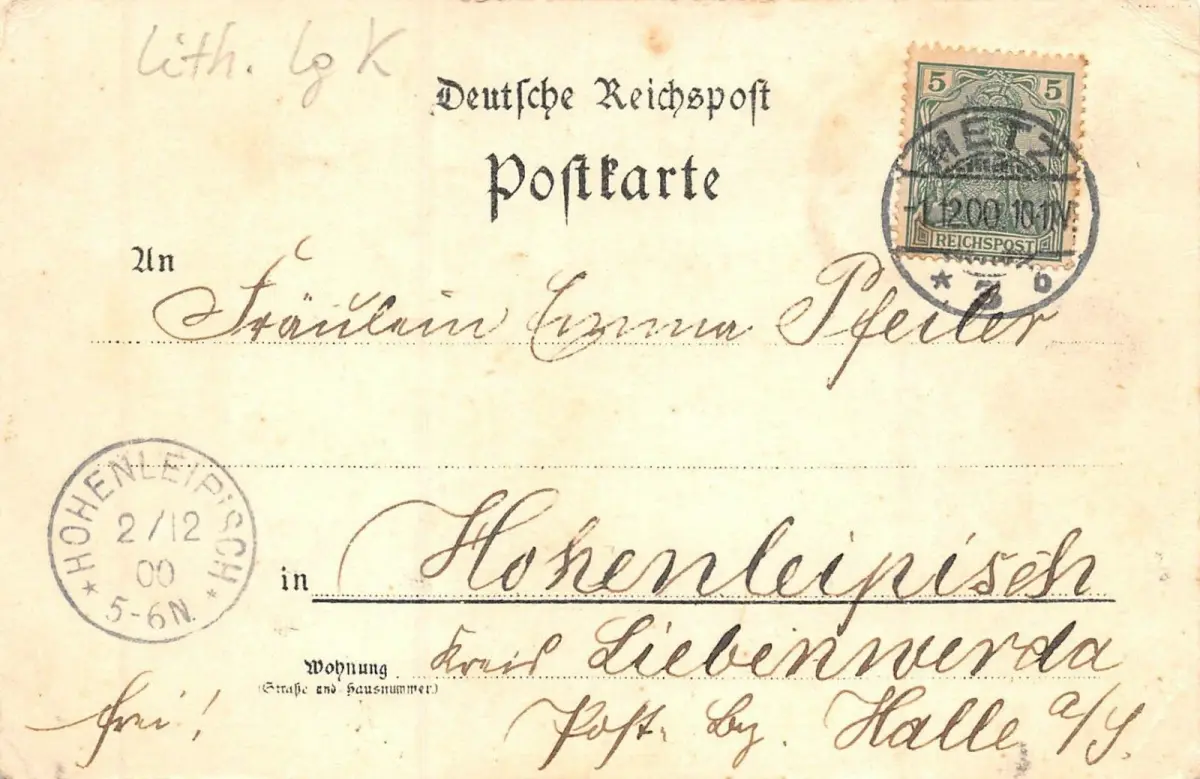 Lith. Lg K
Deutsche Reichspost
Postkarte
5 5
REICHSPOST
METZ
-1.12.00. 10-11V.
* 3 b
An
Fräulein Emma Pfeiler
HOHENLEIPISCH
2/12
00
5-6N.
in Hohenleipisch
Wohnung
(Straße und Hausnummer.)
Kreis Liebenwerda
frei!
Post. Bz. Halle a/S.